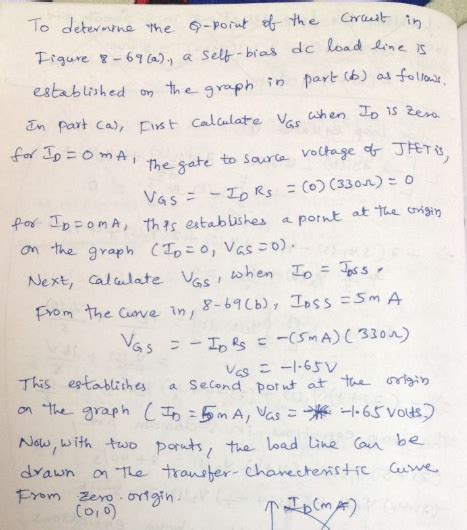 To determine the Q-point of the Circuit in
Figure 8-69(a), a self-bias dc load line is
established on the graph in part (b) as follows.
In part (a), First Calculate VGS when ID is zero
for ID = 0 mA, the gate to source voltage of JFET is,
VGS = - ID RS = (0) (330Ω) = 0
for ID = 0mA, this establishes a point at the origin
on the graph (ID = 0, VGS = 0).
Next, Calculate VGS, when ID = IDSS.
From the Curve in, 8-69(b), IDSS = 5m A
VGS = - ID RS = -(5mA) (330Ω)
VGS = -1.65V
This establishes a second point at the origin
on the graph (ID = 5mA, VGS = -1.65 Volts)
Now, with two points, the load line can be
drawn on the transfer-Charecteristic Curve
From zero-origin.
(0,0)
ID (mA)